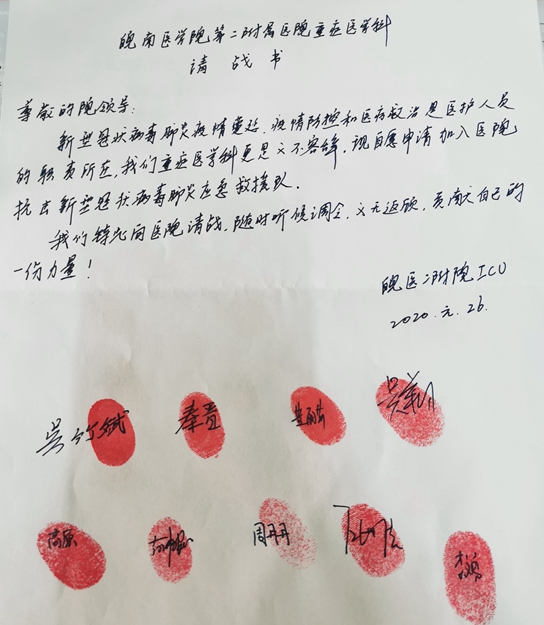 皖南医学院第二附属医院重症医学科
请战书
尊敬的院领导：
新型冠状病毒肺炎疫情蔓延，疫情防控和医疗救治是医护人员
的职责所在，我们重症医学科更是义不容辞，现自愿申请加入医院
抗击新型冠状病毒肺炎应急救援队。
我们特先向医院请战，随时听候调令，义无返顾，贡献自己的
一份力量！
皖医二附院ICU
2020.元.26.
秦雪
高原
周丹丹